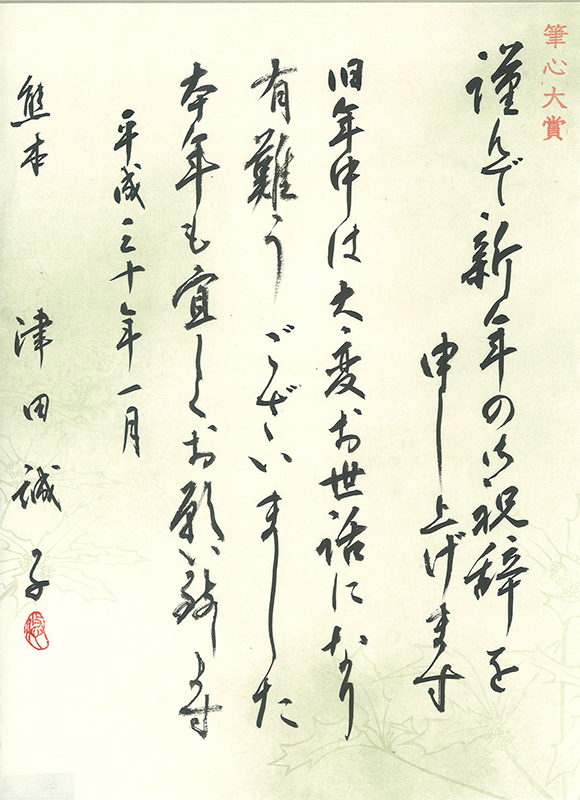 筆心大賞
謹んで新年の御祝辞を
申し上げます
旧年中は大変お世話になり
有難うございました
本年も宜しくお願い致します
平成三十年一月
熊本 津田誠子